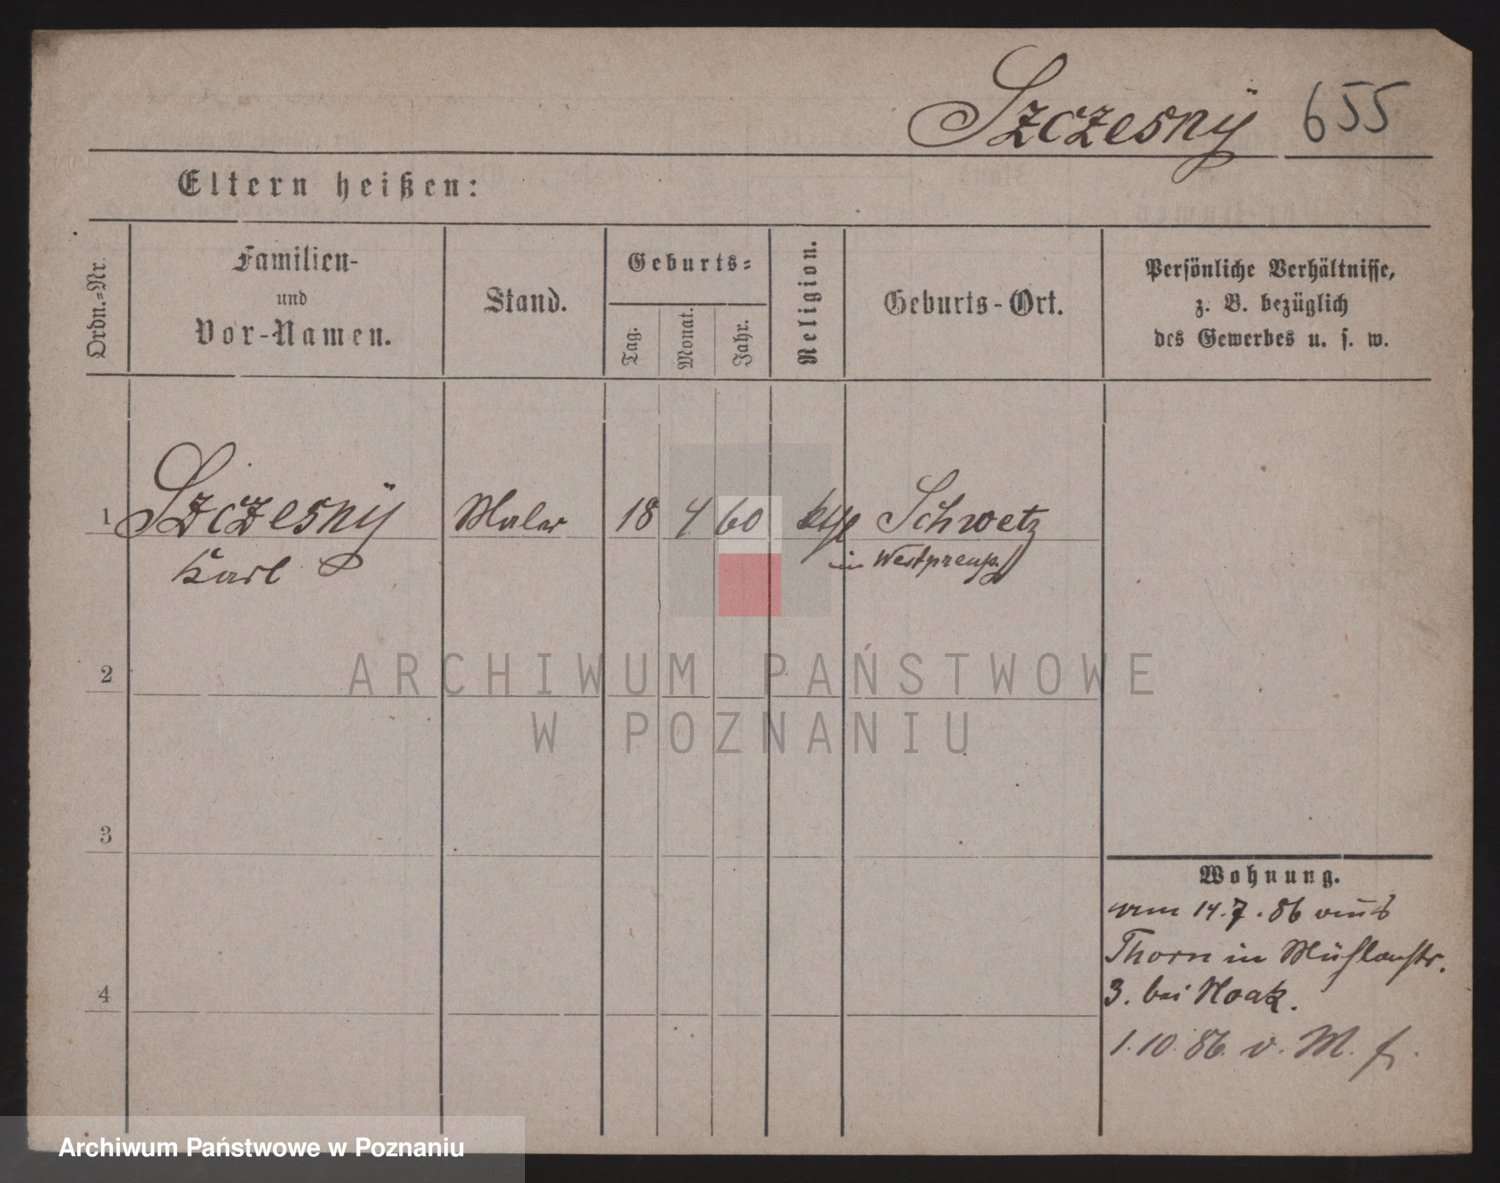 Szczesny 655
Eltern heißen:
Ordn.=Nr.
Familien-
und
Vor-Namen.
Stand.
Geburts=
Tag.
Monat.
Jahr.
Religion.
Geburts-Ort.
Persönliche Verhältnisse,
z. B. bezüglich
des Gewerbes u. s. w.
1 Szczesny Maler 18 4 60 kth Schwetz
Karl in Westpreuß.
2
3
4
ARCHIWUM PAŃSTWOWE
W POZNANIU
Wohnung.
vom 14.7.86 aus
Thorn in Mühlenstr.
3. bei Noak.
1.10.86. v. M. f.
Archiwum Państwowe w Poznaniu